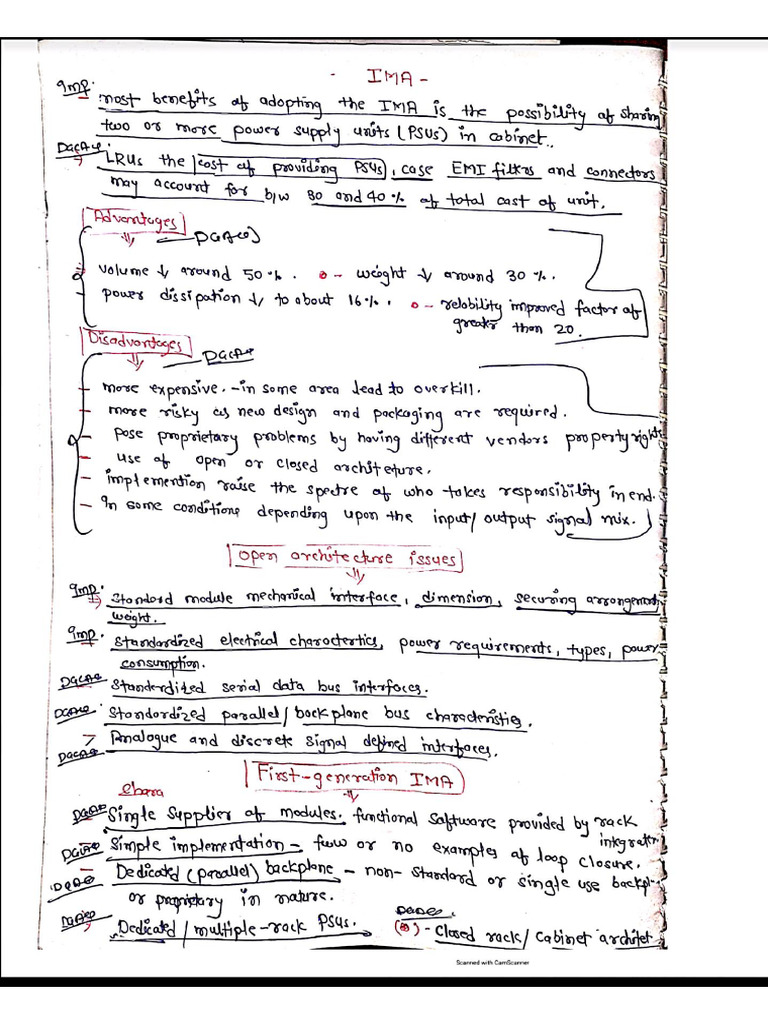 - IMA -
Imp. most benefits of adopting the IMA is the possibility of sharing
two or more power supply units (PSUs) in cabinet..
LRUs the cost of providing PSUs, case EMI filters and connectors
may account for b/w 30 and 40% of total cast of unit.
Advantages
volume ↓ around 50%. - weight ↓ around 30%.
- power dissipation ↓ to about 16%. - relability improved factor of
greater than 20.
Disadvantages
- more expensive. - in some area lead to overkill.
- more risky as new design and packaging are required.
- pose proprietary problems by having different vendors property rights
- use of open or closed architeture.
- implemention raise the spectre of who takes responsibility in end.
- In some conditions depending upon the input/output signal mix.
Open architecture issues
Imp. Standard module mechanical interface, dimension, securing arrangement
weight.
Imp. Standardized electrical charactertics, power requirements, types, power
consumption.
Standerdized serial data bus interfaces.
Standardized parallel/backplane bus characteristics.
Analogue and discrete signal defined interfaces.
First-generation IMA
Single supplier of modules. functional software provided by rack
integrater.
Simple implementation - few or no examples of loop closure.
Dedicated (parallel) backplane - non-standard or single use backpl-
or proprietary in nature.
Dedicated/multiple-rack PSUs. - Closed rack/cabinet architet
Scanned with CamScanner